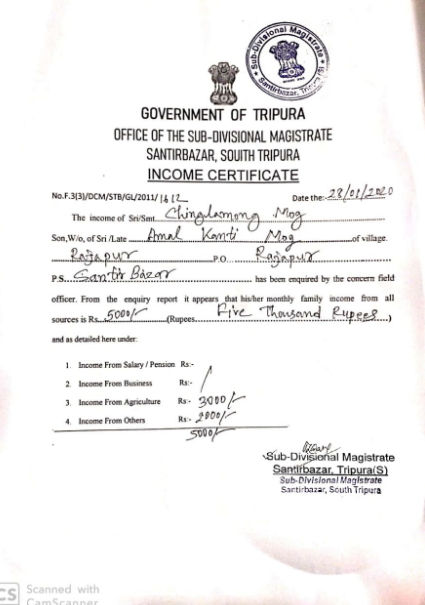 Sub-Divisional Magistrate
Santirbazar, Tripura(S)
GOVERNMENT OF TRIPURA
OFFICE OF THE SUB-DIVISIONAL MAGISTRATE
SANTIRBAZAR, SOUITH TRIPURA
INCOME CERTIFICATE
No.F.3(3)/DCM/STB/GL/2011/1612 Date the:-28/01/2020
The income of Sri/Smt. Chinglamong Mog
Son,W/o, of Sri /Late Amal Kanti Mog of village.
Rajapur P.O Rajapur
P.S. Santir Bazar has been enquired by the concern field
officer. From the enquiry report it appears that his/her monthly family income from all
sources is Rs. 5000/- (Rupees. Five Thousand Rupees.)
and as detailed here under:
1. Income From Salary / Pension Rs:-
2. Income From Business Rs:- /
3. Income From Agriculture Rs:- 3000/-
4. Income From Others Rs:- 2000/-
5000/-
Sub-Divisional Magistrate
Santirbazar, Tripura(S)
Sub-Divisional Magistrate
Santirbazar, South Tripura
CS Scanned with
CamScanner